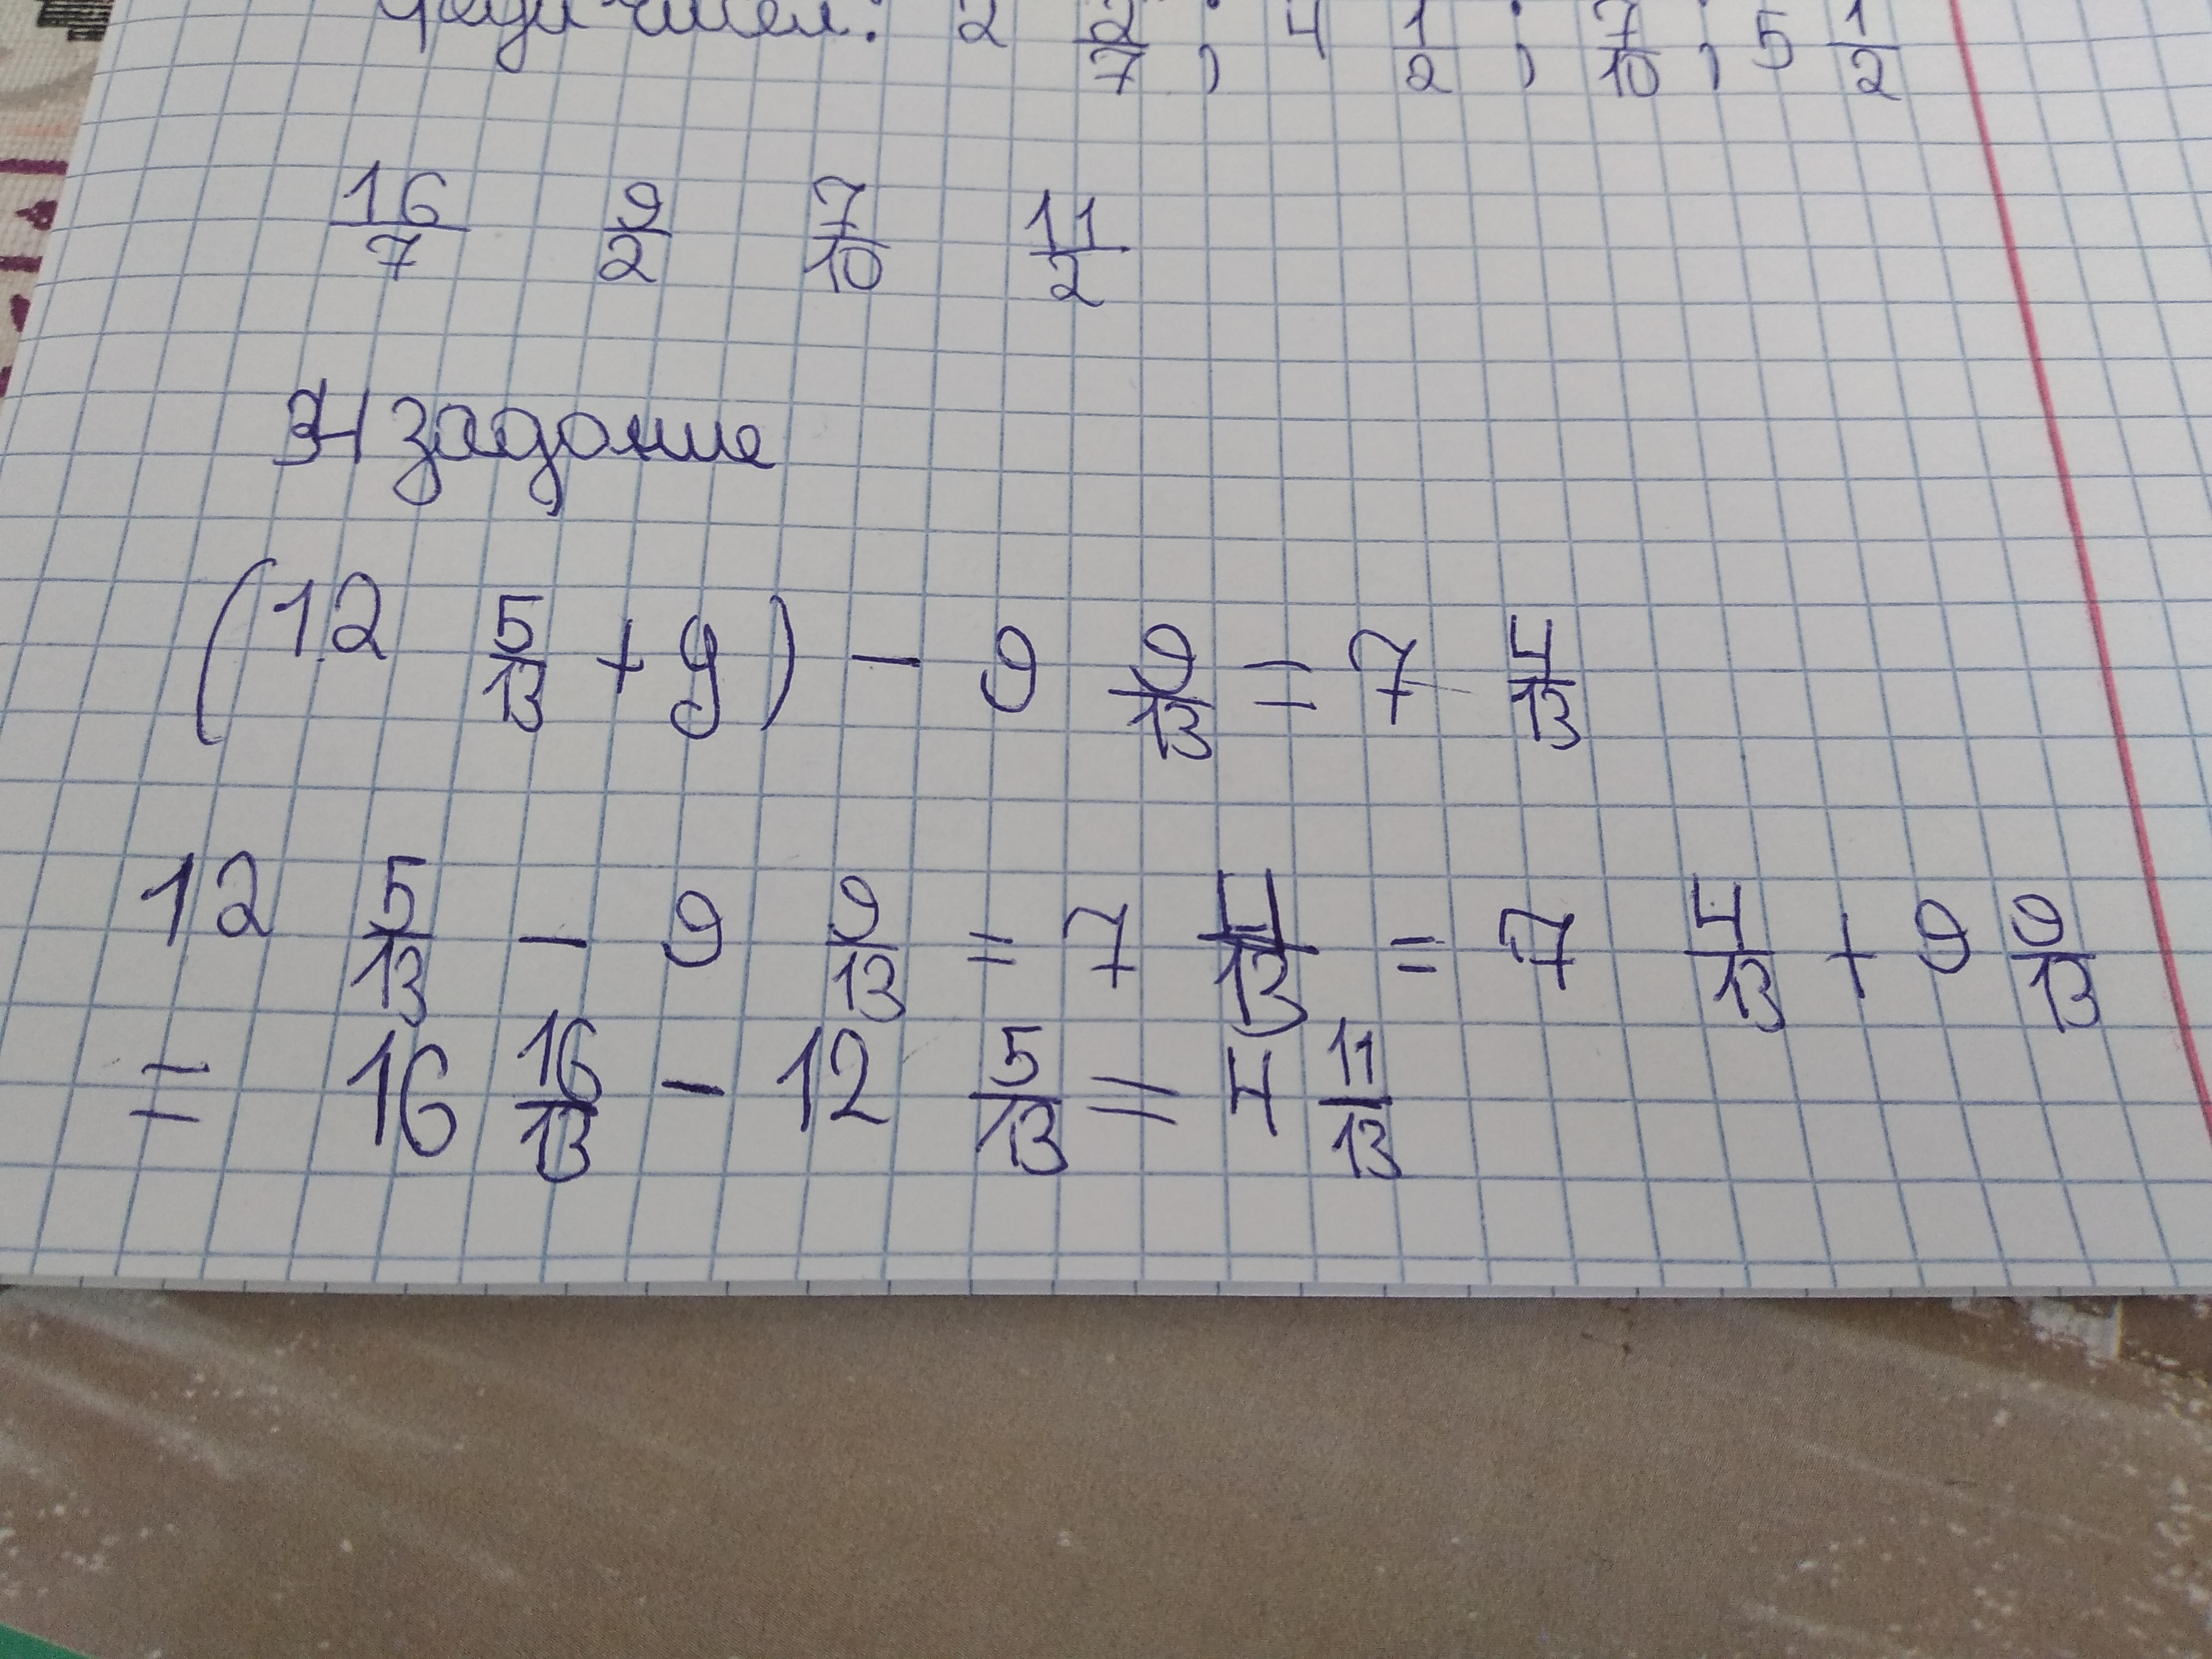 чисел: 2 2/7 ; 4 1/2 ; 7/10 ; 5 1/2
16/7 9/2 7/10 11/2
4 задание
(12 5/13 + y) - 9 9/13 = 7 4/13
12 5/13 - 9 9/13 = 7 4/13 = 7 4/13 + 9 9/13
= 16 16/13 - 12 5/13 = 4 11/13